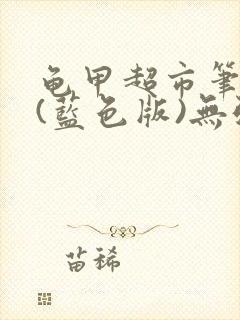 龟甲超市筆
(藍色版)無
苗稀